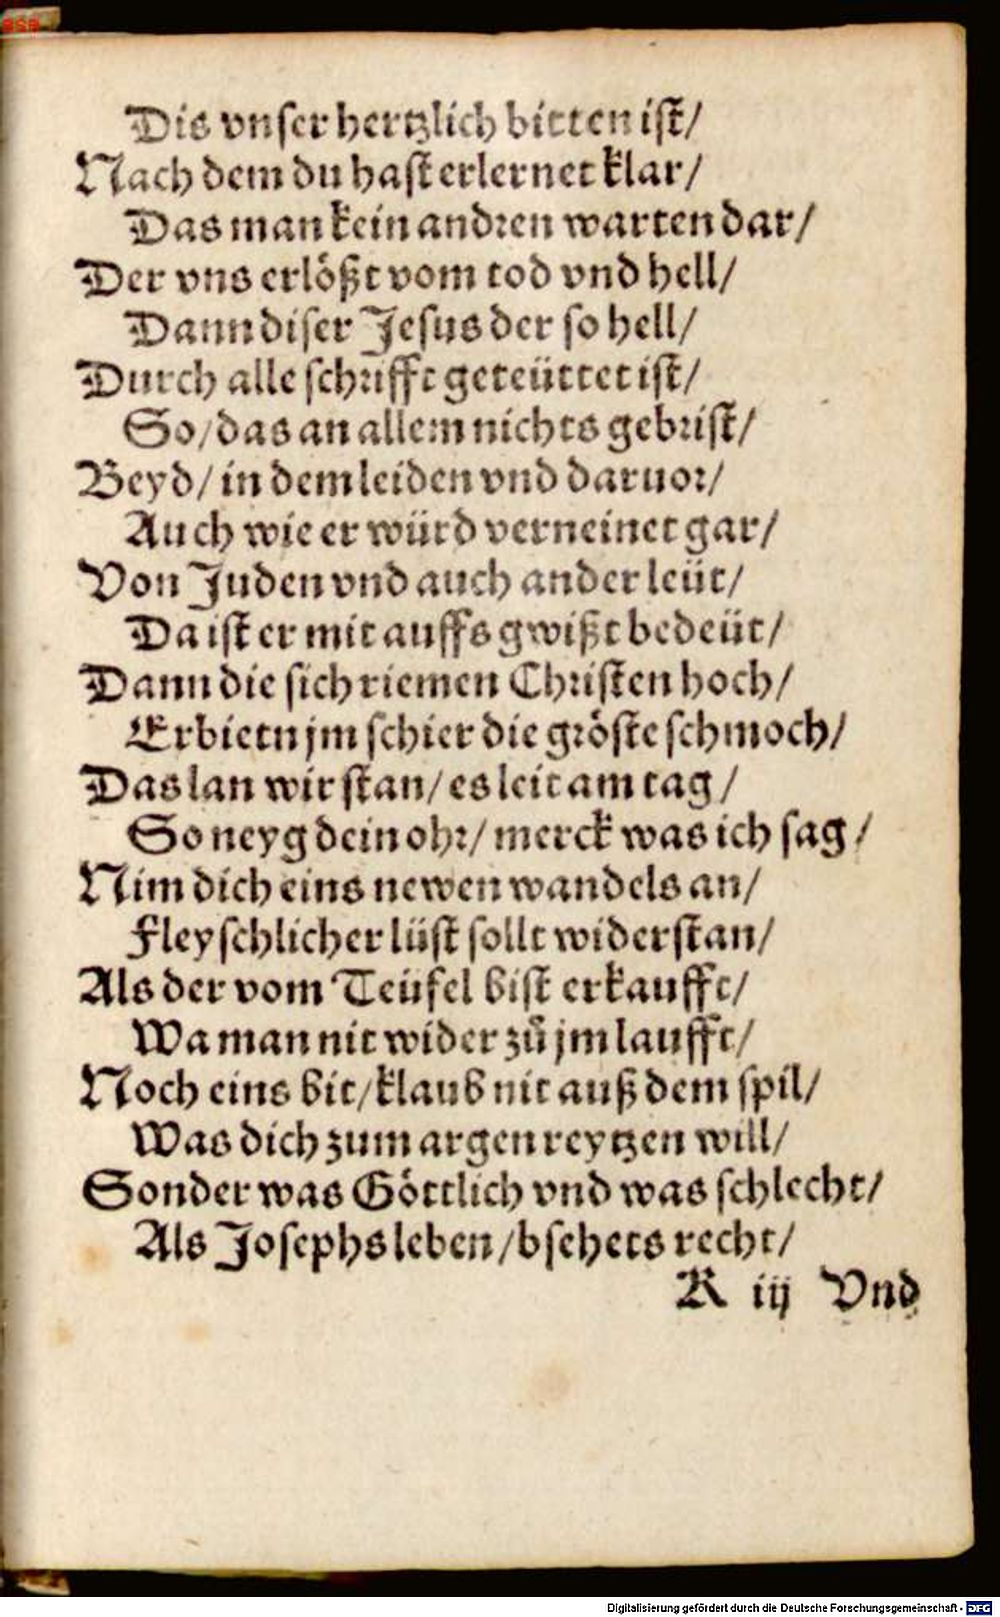 Dis vnser hertzlich bitten ist/
Nach dem du hast erlernet klar/
Das man kein andren warten dar/
Der vns erlößt vom tod vnd hell/
Dann diser Jesus der so hell/
Durch alle schrifft geteüttet ist/
So/das an allem nichts gebrist/
Beyd/ in dem leiden vnd daruor/
Auch wie er würd verneinet gar/
Von Juden vnd auch ander leüt/
Da ist er mit auffs gwißt bedeüt/
Dann die sich riemen Christen hoch/
Erbietn jm schier die gröste schmoch/
Das lan wir stan/ es leit am tag/
So neyg dein ohr/ merck was ich sag/
Nim dich eins newen wandels an/
Fleyschlicher lüst sollt widerstan/
Als der vom Teüfel bist erkaufft/
Wa man nit wider zů jm laufft/
Noch eins bit/klaub nit auß dem spil/
Was dich zum argen reytzen will/
Sonder was Göttlich vnd was schlecht/
Als Josephs leben/bsehets recht/
K iij Vnd
Digitalisierung gefördert durch die Deutsche Forschungsgemeinschaft - DFG
BSB